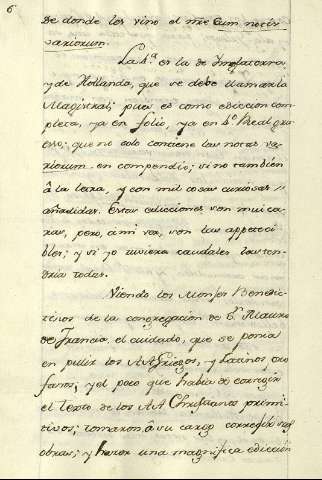 6
de donde les vino el nre cum notis
variorum.
La 4.ª es la de Inglaterra,
y de Hollanda, que se debe llamar la
Magistral; pues es como ediccion com
pleta, ya en folio, ya en 4.º Real grue
sso; que no solo contiene las notas va
riorum en compendio; sino tambien
â la letra, y con mil cosas curiosas
añadidas. Estas edicciones son mui ca
ras, pero, â mi ver, son las appeteci
bles; y si yo tuviera caudales las ten
dria todas.
Viendo los Monjes Benedic
tinos de la congregacion de S.n Mauro
de Francia, el cuidado, que se ponia
en pulir los AA Griegos, y Latinos pro
fanos; y el poco que habia de corregir
el texto de los AA Christianos primi
tivos; tomaron, â su cargo corregir sus
obras; y hacer una magnifica ediccion